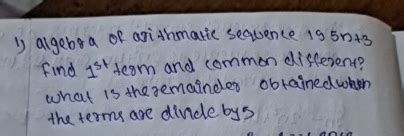 1) algebra of arithmatic sequence is 5n+3
find 1st term and common different?
what is the remainder obtained when
the terms are divide by 5